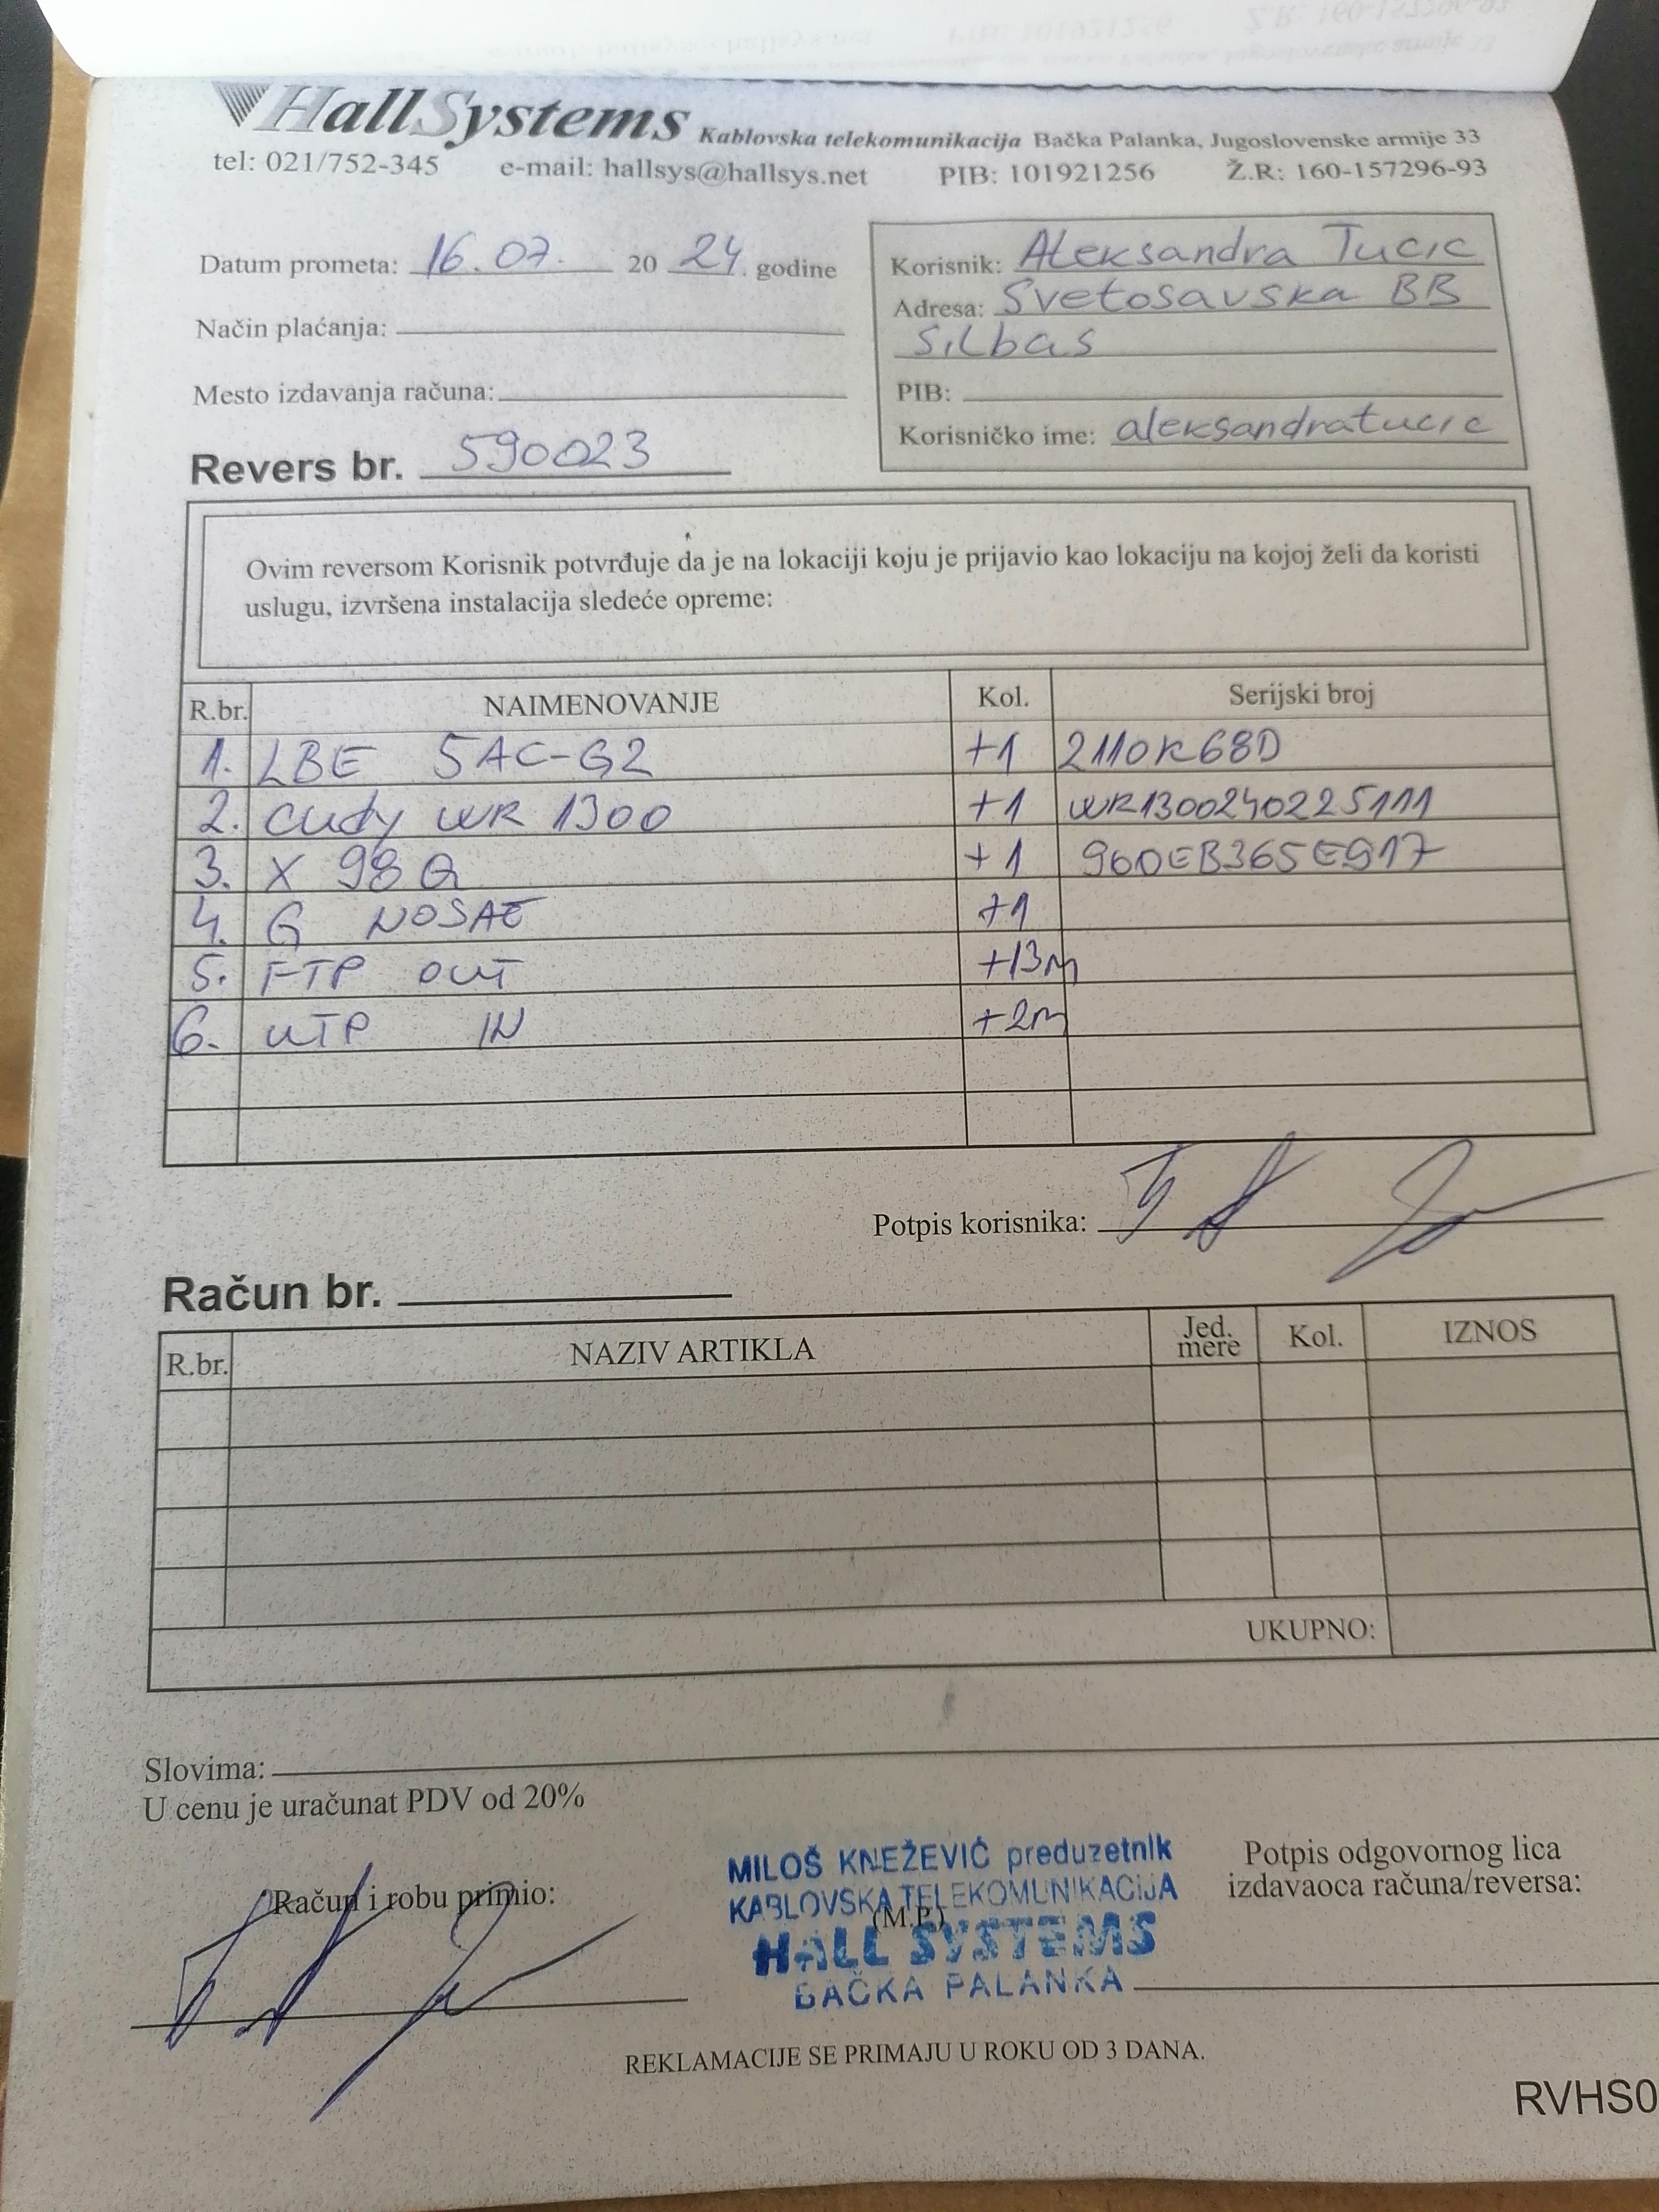 HallSystems Kablovska telekomunikacija Bačka Palanka, Jugoslovenske armije 33
tel: 021/752-345 e-mail: hallsys@hallsys.net PIB: 101921256 Ž.R: 160-157296-93
Datum prometa: 16.07. 20 24. godine
Način plaćanja:
Mesto izdavanja računa:
Revers br. 590023
Korisnik: Aleksandra Tucic
Adresa: Svetosavska BB
Silbas
PIB:
Korisničko ime: aleksandratucic
Ovim reversom Korisnik potvrđuje da je na lokaciji koju je prijavio kao lokaciju na kojoj želi da koristi
uslugu, izvršena instalacija sledeće opreme:
R.br. NAIMENOVANJE Kol. Serijski broj
1. LBE 5AC-G2 +1 2110K68D
2. Cudy WR 1300 +1 WR1300240225111
3. X 98 Q +1 960EB365E917
4. G NOSAČ +1
5. FTP OUT +13m
6. UTP IN +2m
Potpis korisnika:
Račun br.
R.br. NAZIV ARTIKLA Jed. mere Kol. IZNOS
UKUPNO:
Slovima:
U cenu je uračunat PDV od 20%
Račun i robu primio:
MILOŠ KNEŽEVIĆ preduzetnik
KABLOVSKA TELEKOMUNIKACIJA
(M.P.)
HALL SYSTEMS
BAČKA PALANKA
Potpis odgovornog lica
izdavaoca računa/reversa:
REKLAMACIJE SE PRIMAJU U ROKU OD 3 DANA.
RVHS0